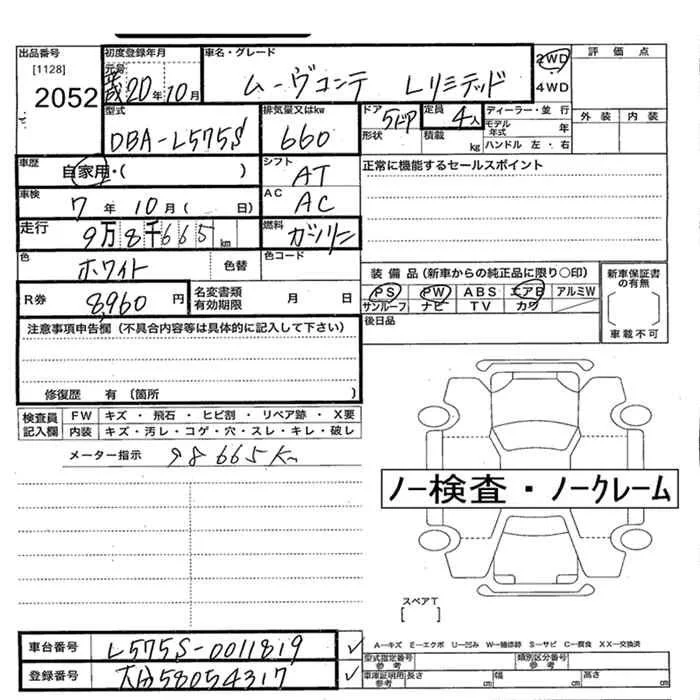 出品番号 初度登録年月 車名・グレード 2WD 評価点
[1128] 元号 平成 20年 10月 ムーヴコンテ Lリミテッド 4WD
2052 型式 排気量又はkw ドア 5ドア 定員 4人 ディーラー・並行 外装 内装
DBA-L575S 660 形状 積載 kg モデル年式 年
ハンドル 左・右
車歴 自家用・( ) シフト AT 正常に機能するセールスポイント
車検 7年 10月 ( 日) AC AC
走行 9万8千665km 燃料 ガソリン
色 ホワイト 色替 色コード 装備品 (新車からの純正品に限り○印) 新車保証書の有無
R券 8,960円 名変書類有効期限 月 日 PS PW ABS エアB アルミW
サンルーフ ナビ TV カワ
車載不可
注意事項申告欄 (不具合内容等は具体的に記入して下さい) 後日品
修復歴 有 (箇所 )
検査員記入欄 FW キズ・飛石・ヒビ割・リペア跡・X要
内装 キズ・汚レ・コゲ・穴・スレ・キレ・破レ
メーター指示 98665Km
ノー検査・ノークレーム
スペアT
[ ]
車台番号 L575S-0011819 ✓ A―キズ E―エクボ U―凹み W―補修跡 S―サビ C―腐食 XX―交換済
型式指定番号 参考 類別区分番号 参考
登録番号 大分58054317 ✓ 車庫証明用 参考 長さ cm 幅 cm 高さ cm